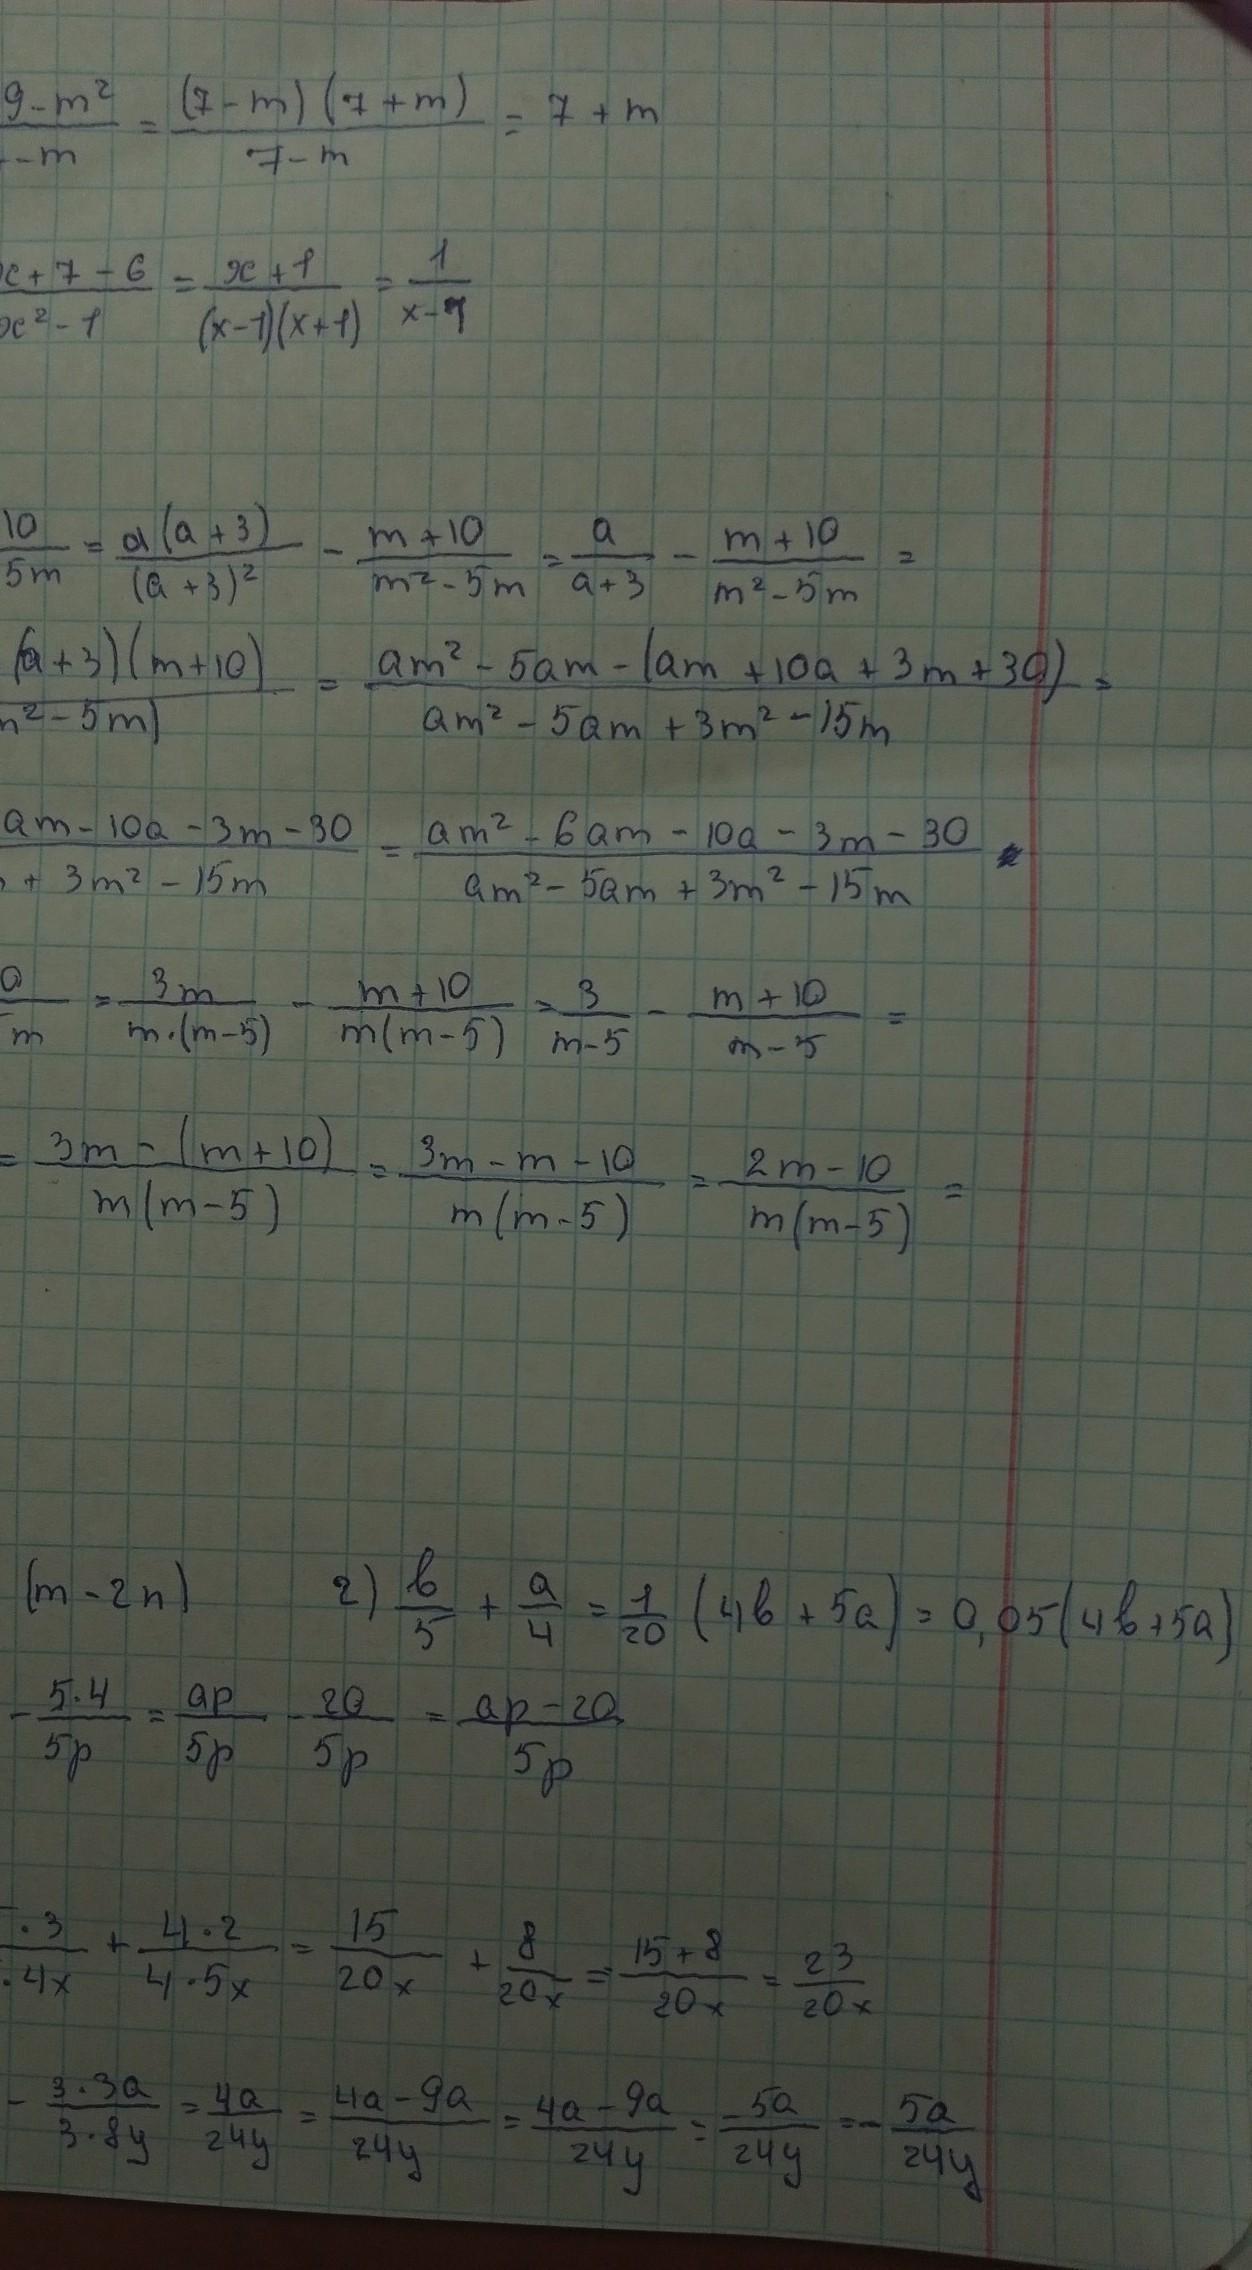 9-m²/-m = (7-m)(7+m)/7-m = 7+m
x+7-6/x²-1 = x+1/(x-1)(x+1) = 1/x-1
10/5m = a(a+3)/(a+3)² - m+10/m²-5m = a/a+3 - m+10/m²-5m =
(a+3)(m+10)/m²-5m) = am²-5am-(am+10a+3m+30)/am²-5am+3m²-15m =
am-10a-3m-30/+3m²-15m = am²-6am-10a-3m-30/am²-5am+3m²-15m
0/m = 3m/m·(m-5) - m+10/m(m-5) = 3/m-5 - m+10/m-5 =
= 3m-(m+10)/m(m-5) = 3m-m-10/m(m-5) = 2m-10/m(m-5) =
(m-2n) 2) b/5 + a/4 = 1/20 (4b+5a) = 0,05(4b+5a)
- 5·4/5p = ap/5p - 20/5p = ap-20/5p
·3/·4x + 4·2/4·5x = 15/20x + 8/20x = 15+8/20x = 23/20x
- 3·3a/3·8y = 4a/24y = 4a-9a/24y = 4a-9a/24y = -5a/24y = - 5a/24y